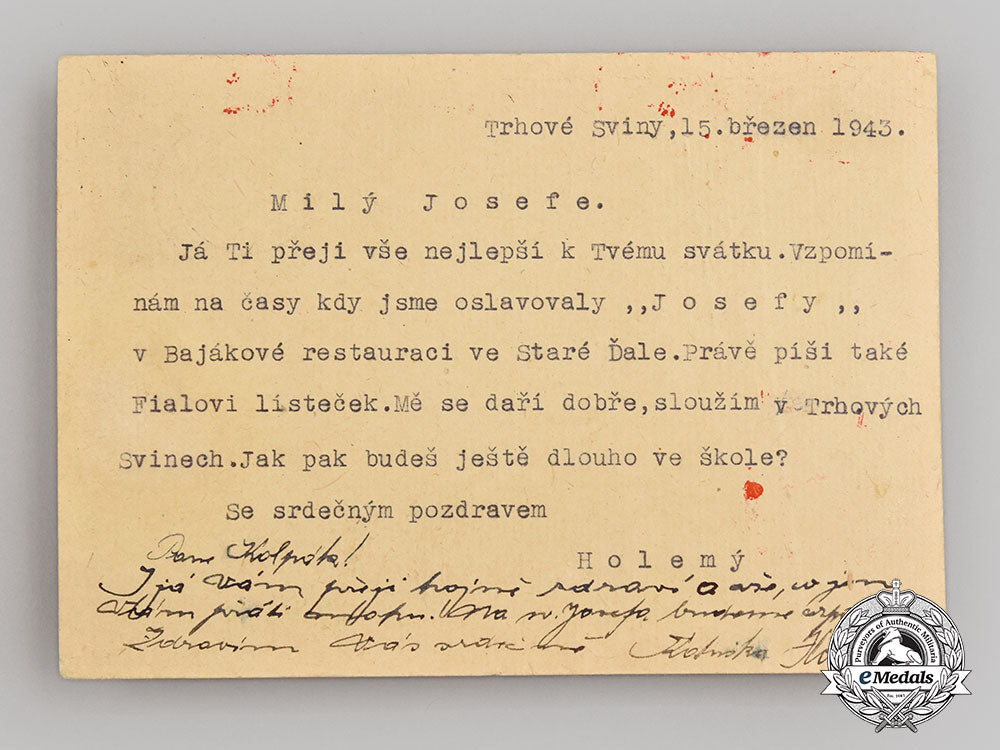 Trhové Sviny,15.březen 1943.
Milý Josefe.
Já Ti přeji vše nejlepší k Tvému svátku.Vzpomí-
nám na časy kdy jsme oslavovaly ,,Josefy,,
v Bajákové restauraci ve Staré Ďale.Právě píši také
Fialovi lísteček.Mě se daří dobře,sloužím v Trhových
Svinech.Jak pak budeš ještě dlouho ve škole?
Se srdečným pozdravem
Holemý
Pane Kolpák!
I já Vám přeji hojně zdraví a vše, co jen
Vám přáti mohu! Na sv. Josefa budeme
Zdravím Vás srdečně
Purveyors of Authentic Militaria
eMedals